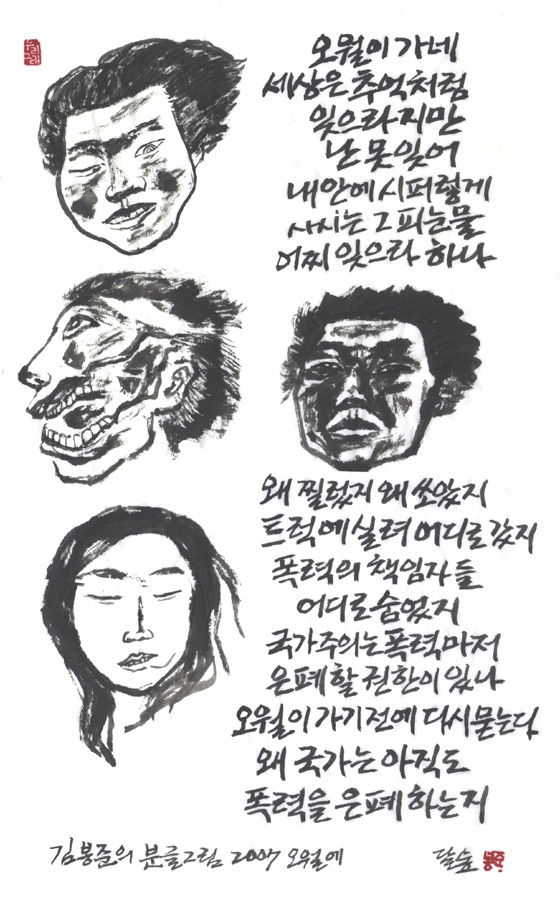 오월이 가네
세상은 추억처럼
잊으라지만
난 못잊어
내안에 시퍼렇게
사시는 그 피눈물
어찌 잊으라 하나
왜 찔렀지 왜 쏘았지
트럭에 실려 어디로 갔지
폭력의 책임자들
어디로 숨었지
국가주의는 폭력마저
은폐할 권한이 있나
오월이 가기전에 다시묻는다
왜 국가는 아직도
폭력을 은폐하는지
김봉준의 붓글그림 2007 오월에
달숲